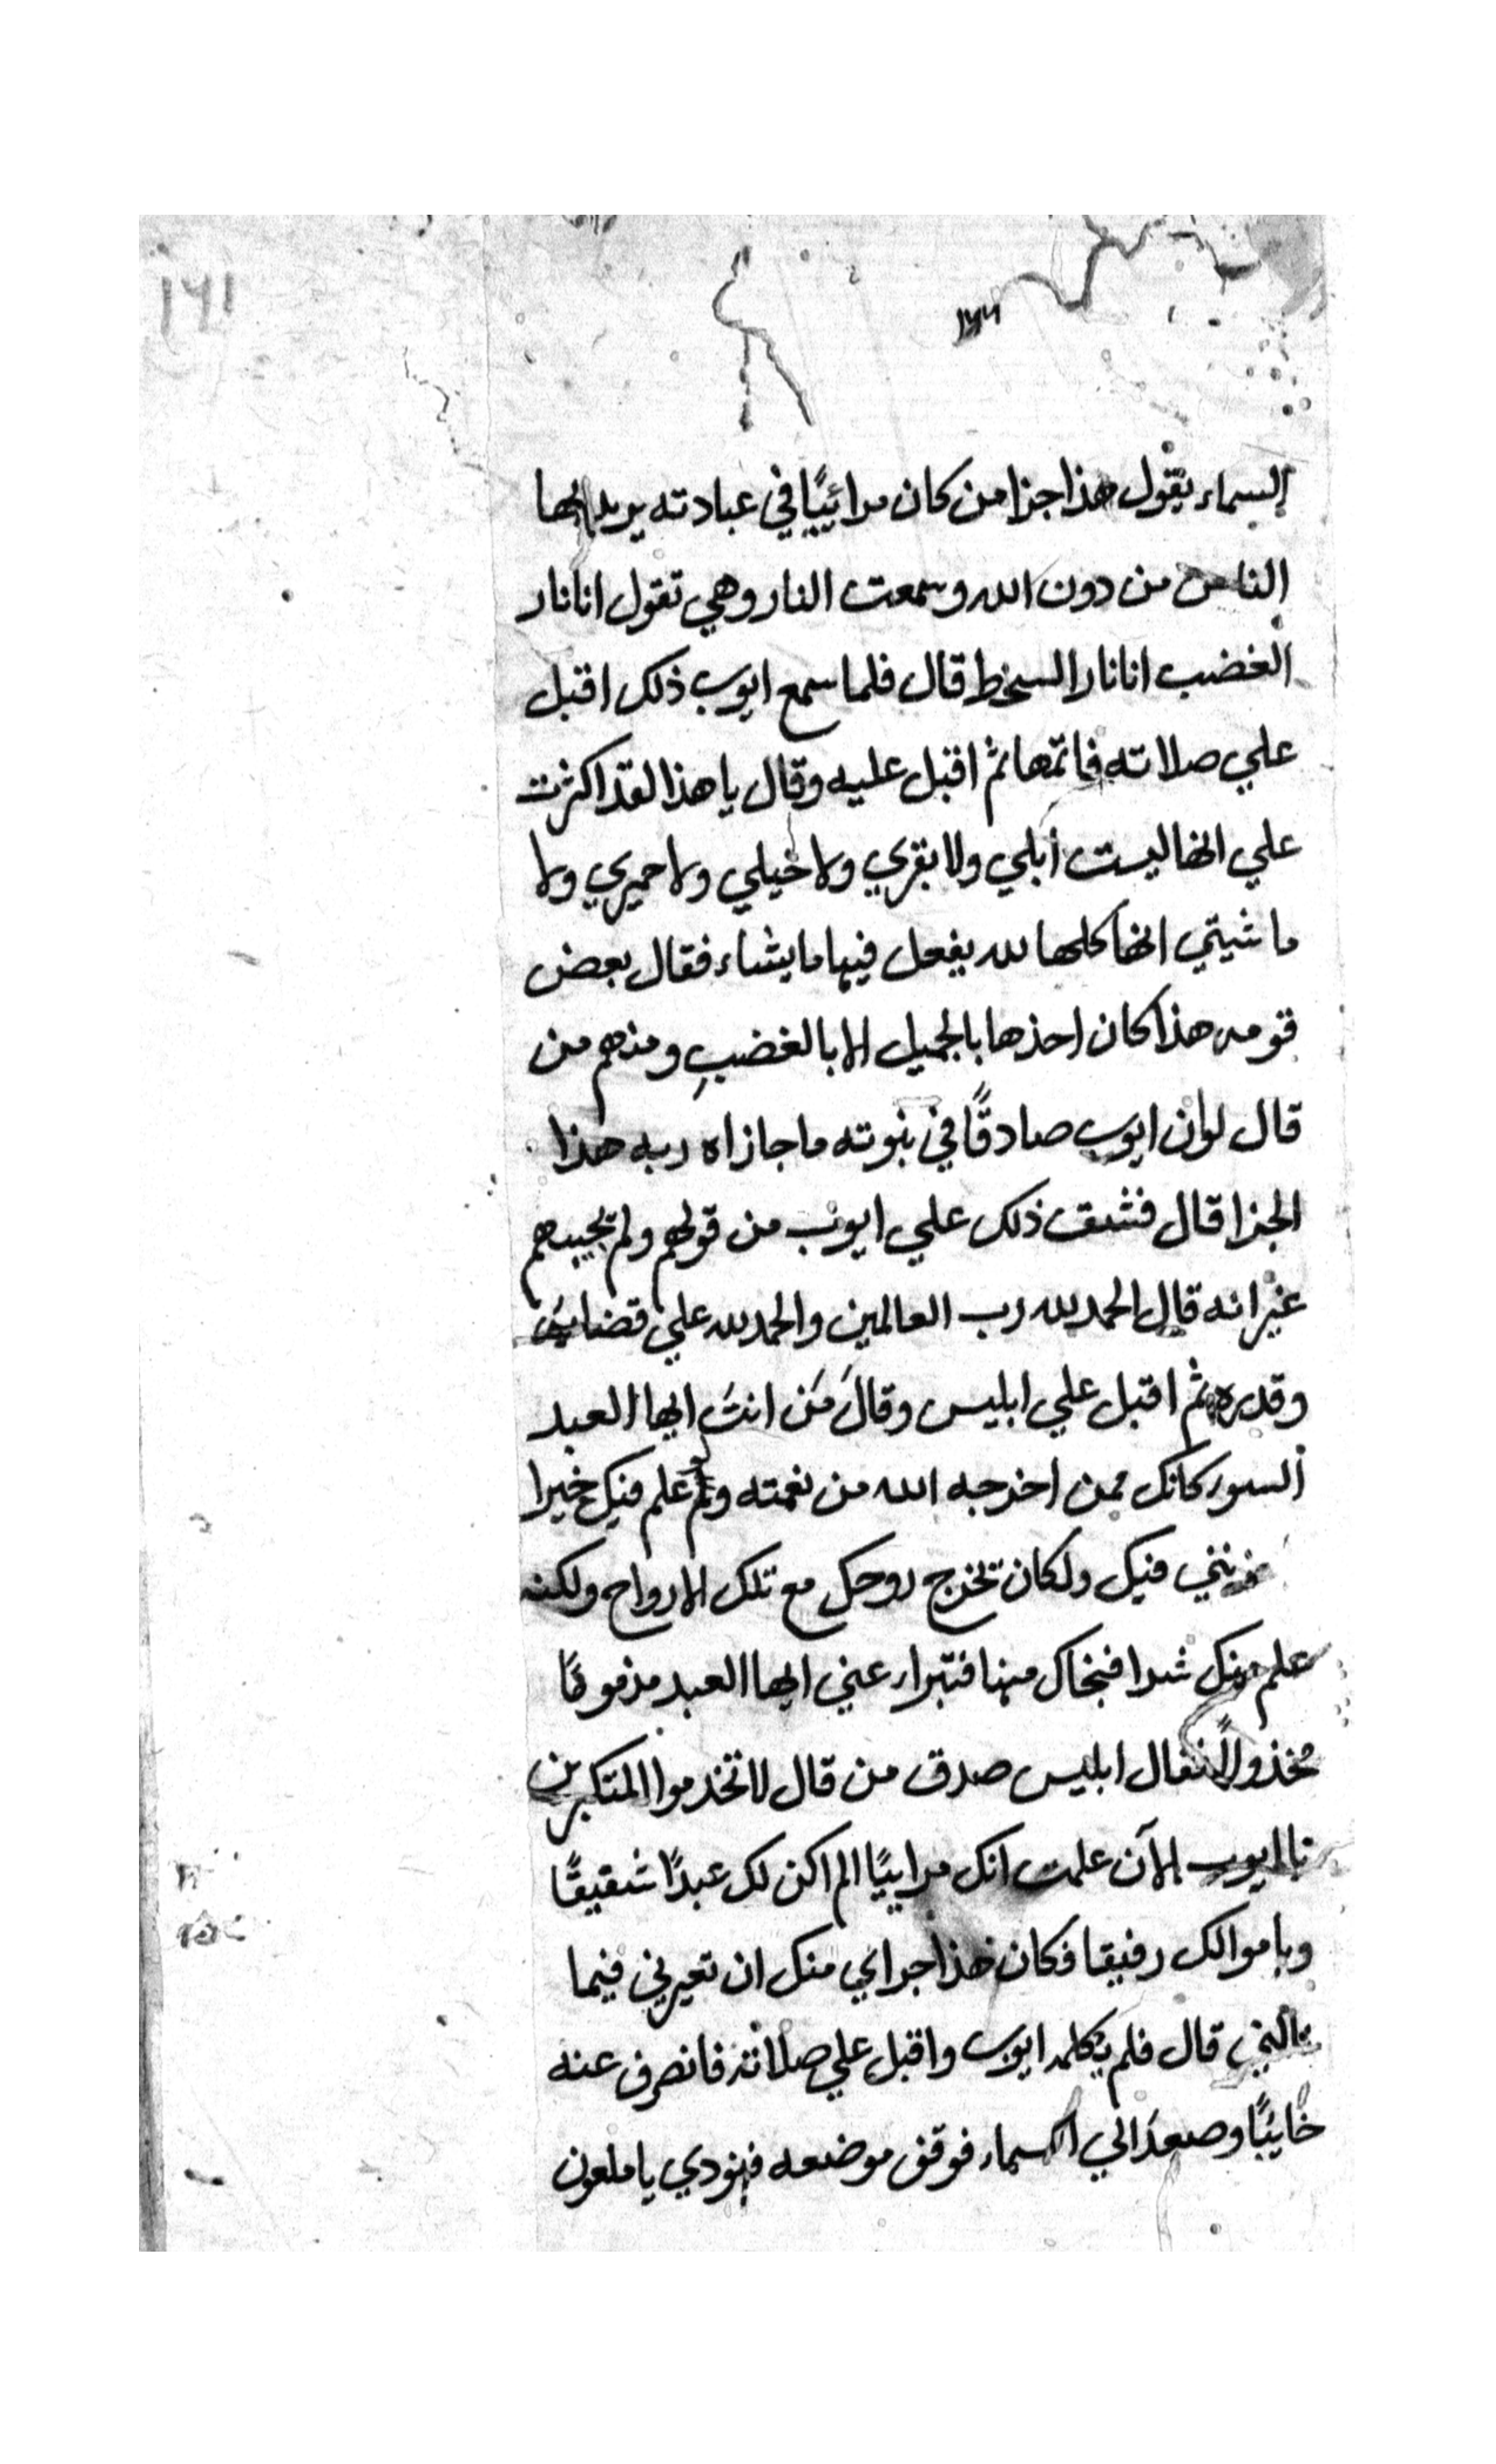 ١٦١
السماء يقول هذا جزا من كان مرائيًا في عبادته يريد بها
الناس من دون الله وسمعت النار وهي تقول انا نار
الغضب انا نار السخط قال فلما سمع ايوب ذلك اقبل
علي صلاته فاتمها ثم اقبل عليه وقال يا هذا لقد اكثرت
علي انها ليست أبلي ولا بقري ولا خيلي ولا حميري ولا
ماشيتي انها كلها لله يفعل فيها ما يشاء فقال بعض
قومه هذا كان احذها بالجميل لا بالغضبِ ومنهم من
قال لو ان ايوب صادقًا في بنوته ما جازاه ربه هذا
الجزا قال فشق ذلك علي ايوب من قولهم ولم يجيبهم
غير انه قال الحمد لله رب العالمين والحمد لله علي قضايه
وقدره ثم اقبل علي ابليس وقالَ مَن انتَ ايها العبد
السور كانك ممن اخرجه الله من نعمته ولم علم فيك خيرا
فيك ولكان تخرج روحك مع تلك الارواح ولكنه
علم منك شرا فنجاك منها فتبرا عني ايها العبد مذمومًا
مخذولًا فقال ابليس صدق من قال لا تخدموا المتكبرين
يا ايوب الآن علمت انك مراييًا الم اكن لك عبدًا شفيقًا
وباموالك رفيقا فكان هذا جراي منك ان تعيرني فيما
قال فلم يكلمه ايوب واقبل علي صلاته فانصرف عنه
خايبًا وصعدَ الي السماء فوقف موضعه فنودي يا ملعون